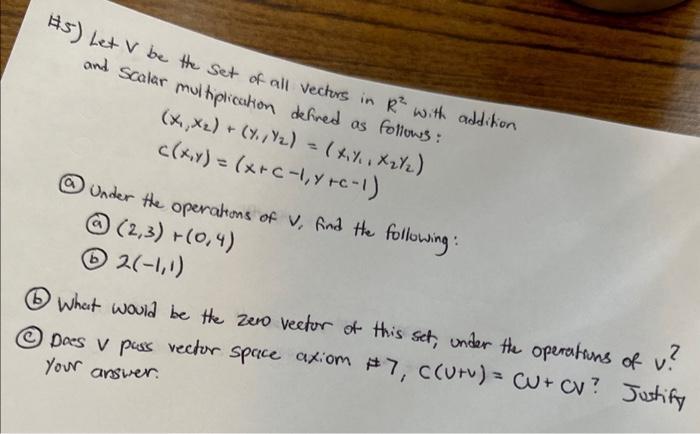 #5) Let V be the set of all vectors in R² with addition
and scalar multiplication defined as follows:
(x₁,x₂) + (y₁,y₂) = (x₁y₁, x₂y₂)
c(x,y) = (x+c-1, y+c-1)
ⓐ Under the operations of V, find the following:
ⓐ (2,3) + (0,4)
ⓑ 2(-1,1)
ⓑ What would be the zero vector of this set, under the operations of V?
ⓒ Does V pass vector space axiom #7, c(u+v) = cu + cv? Justify
your answer.